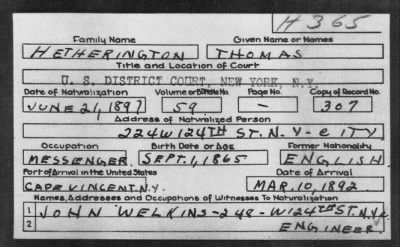 H365
Family Name Given Name or Names
HETHERINGTON THOMAS
Title and Location of Court
U. S. DISTRICT COURT, NEW YORK, N.Y.
Date of Naturalization Volume or Bundle No. Page No. Copy of Record No.
JUNE 21, 1897 59 — 307
Address of Naturalized Person
224 W 124TH ST. N.Y-CITY
Occupation Birth Date or Age Former Nationality
MESSENGER SEPT. 1, 1865 ENGLISH
Port of Arrival in the United States Date of Arrival
CAPE VINCENT. N.Y. MAR. 10, 1892
Names, Addresses and Occupations of Witnesses To Naturalization
1 JOHN WELKINS-249-W124TH ST. N.Y.C.
2 ENGINEER.